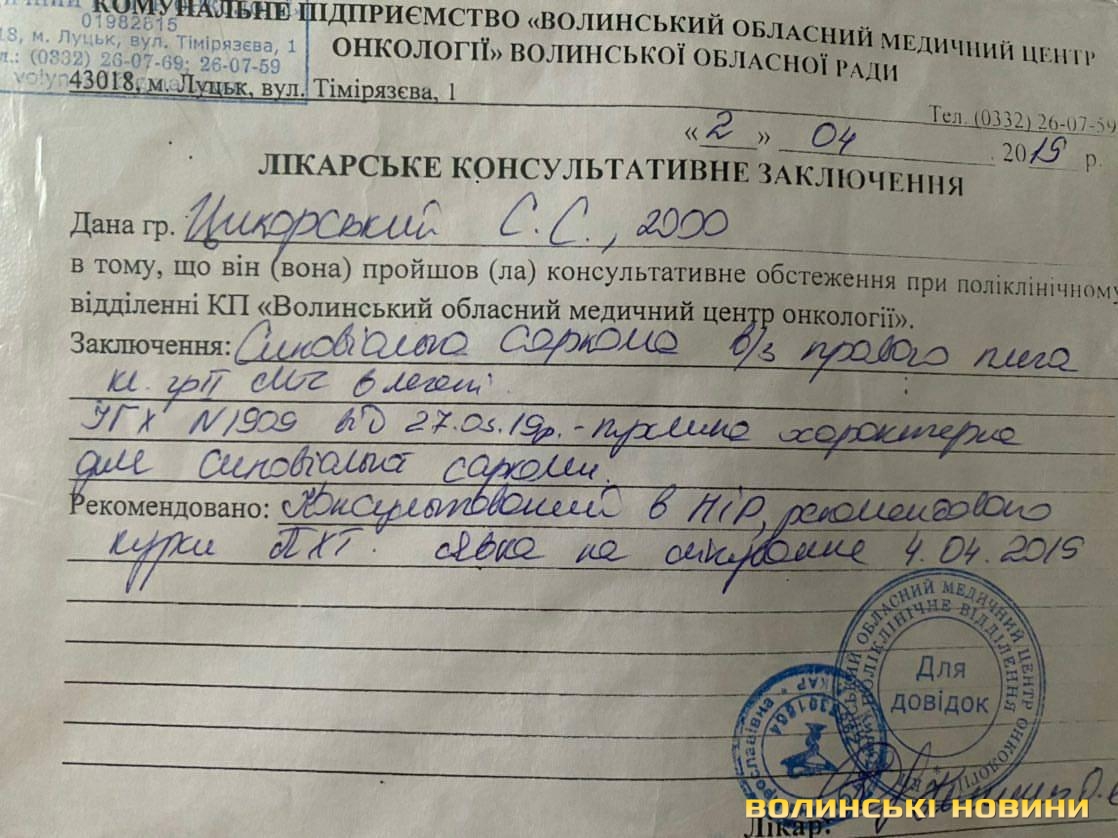 КОМУНАЛЬНЕ ПІДПРИЄМСТВО «ВОЛИНСЬКИЙ ОБЛАСНИЙ МЕДИЧНИЙ ЦЕНТР
ОНКОЛОГІЇ» ВОЛИНСЬКОЇ ОБЛАСНОЇ РАДИ
01982815
18, м. Луцьк, вул. Тімірязєва, 1
(0332) 26-07-69; 26-07-59
43018, м. Луцьк, вул. Тімірязєва, 1
Тел. (0332) 26-07-59
«2» 04 2019 р.
ЛІКАРСЬКЕ КОНСУЛЬТАТИВНЕ ЗАКЛЮЧЕННЯ
Дана гр. Цикорський С.С., 2000
в тому, що він (вона) пройшов (ла) консультативне обстеження при поліклінічному
відділенні КП «Волинський обласний медичний центр онкології».
Заключення: Синовіальна саркома в/з правого
кл. гр ІІ в легені.
ІГХ N1909 від 27.03.19р. - характерна
для синовіальної саркоми.
Рекомендовано: Консультований в НІР, рекомендовано
курси ПХТ. Явка на лікування 4.04.2019
ОБЛАСНИЙ МЕДИЧНИЙ ЦЕНТР ОНКОЛОГІЇ
ПОЛІКЛІНІЧНЕ ВІДДІЛЕННЯ
Для
довідок
ЛІКАР
ВОЛИНСЬКІ НОВИНИ
Лікар: